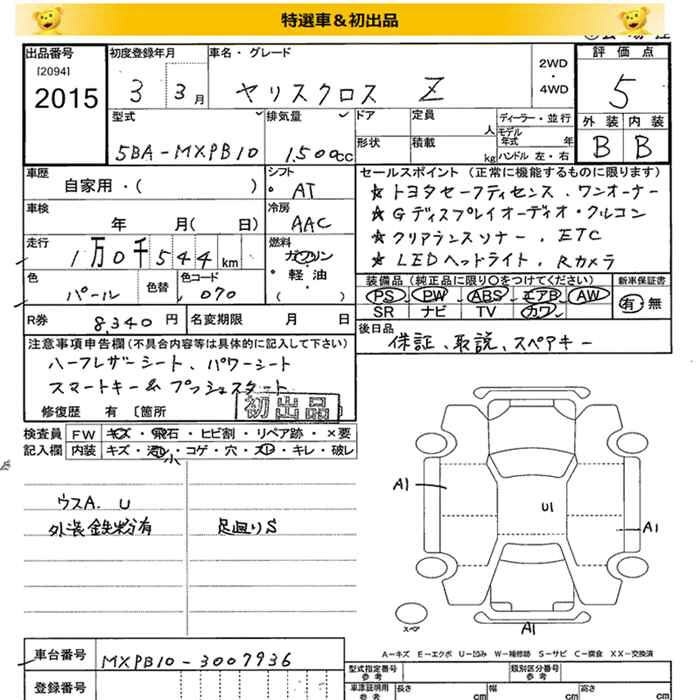 特選車＆初出品
出品番号 初度登録年月 車名・グレード 評価点
[2094]
2015 3 3月 ヤリスクロス Z 2WD・4WD 5
型式 排気量 ドア 定員 人 ディーラー・並行 外装 内装
5BA-MXPB10 1,500cc 形状 積載 kg モデル年式 年 ハンドル 左・右 B B
車歴 シフト セールスポイント (正常に機能するものに限ります)
自家用・( ) AT ☆トヨタセーフティセンス、ワンオーナー
車検 冷房 ☆Gディスプレイオーディオ・クルコン
年 月( 日) AAC ☆クリアランスソナー、ETC
走行 燃料 ☆LEDヘッドライト、Rカメラ
1万0千544km ガソリン
色 色替 色コード 軽油 装備品 (純正品に限り○をつけてください) 新車保証書
パール 070 ( ) PS PW ABS エアB AW 有・無
SR ナビ TV カワ
R券 8,340円 名変期限 月 日 後日品
注意事項申告欄(不具合内容等は具体的に記入して下さい) 保証、取説、スペアキー
ハーフレザーシート、パワーシート
スマートキー& プッシュスタート
修復歴 有 〔箇所 初出品
検査員 FW キズ・飛石・ヒビ割・リペア跡・×要
記入欄 内装 キズ・汚レ・コゲ・穴・スレ・キレ・破レ
小
ウスA. U
外装鉄粉有 足廻りS
A1 U1 A1
スペア A1
A−キズ E−エクボ U−凹み W−補修跡 S−サビ C−腐食 XX−交換済
車台番号 MXPB10-3007936
型式指定番号 参考 類別区分番号 参考
登録番号 車庫証明用 参考 長さ cm 幅 cm 高さ cm